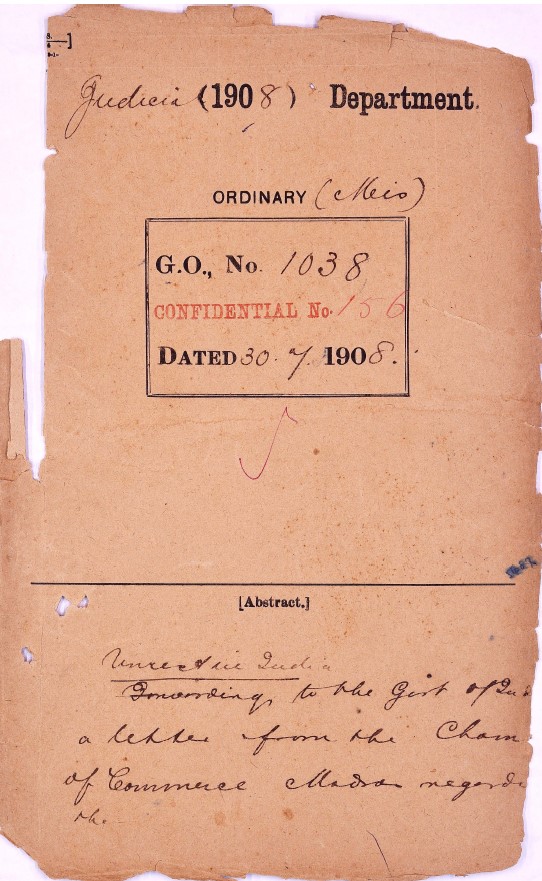 Judicia (1908) Department.
ORDINARY (Mis)
G.O., No. 1038
CONFIDENTIAL No. 156
DATED 30. 7. 1908.
[Abstract.]
Unrest in India
Forwarding to the Govt of Ind
a letter from the Cham
of Commerce Madras regardi
the